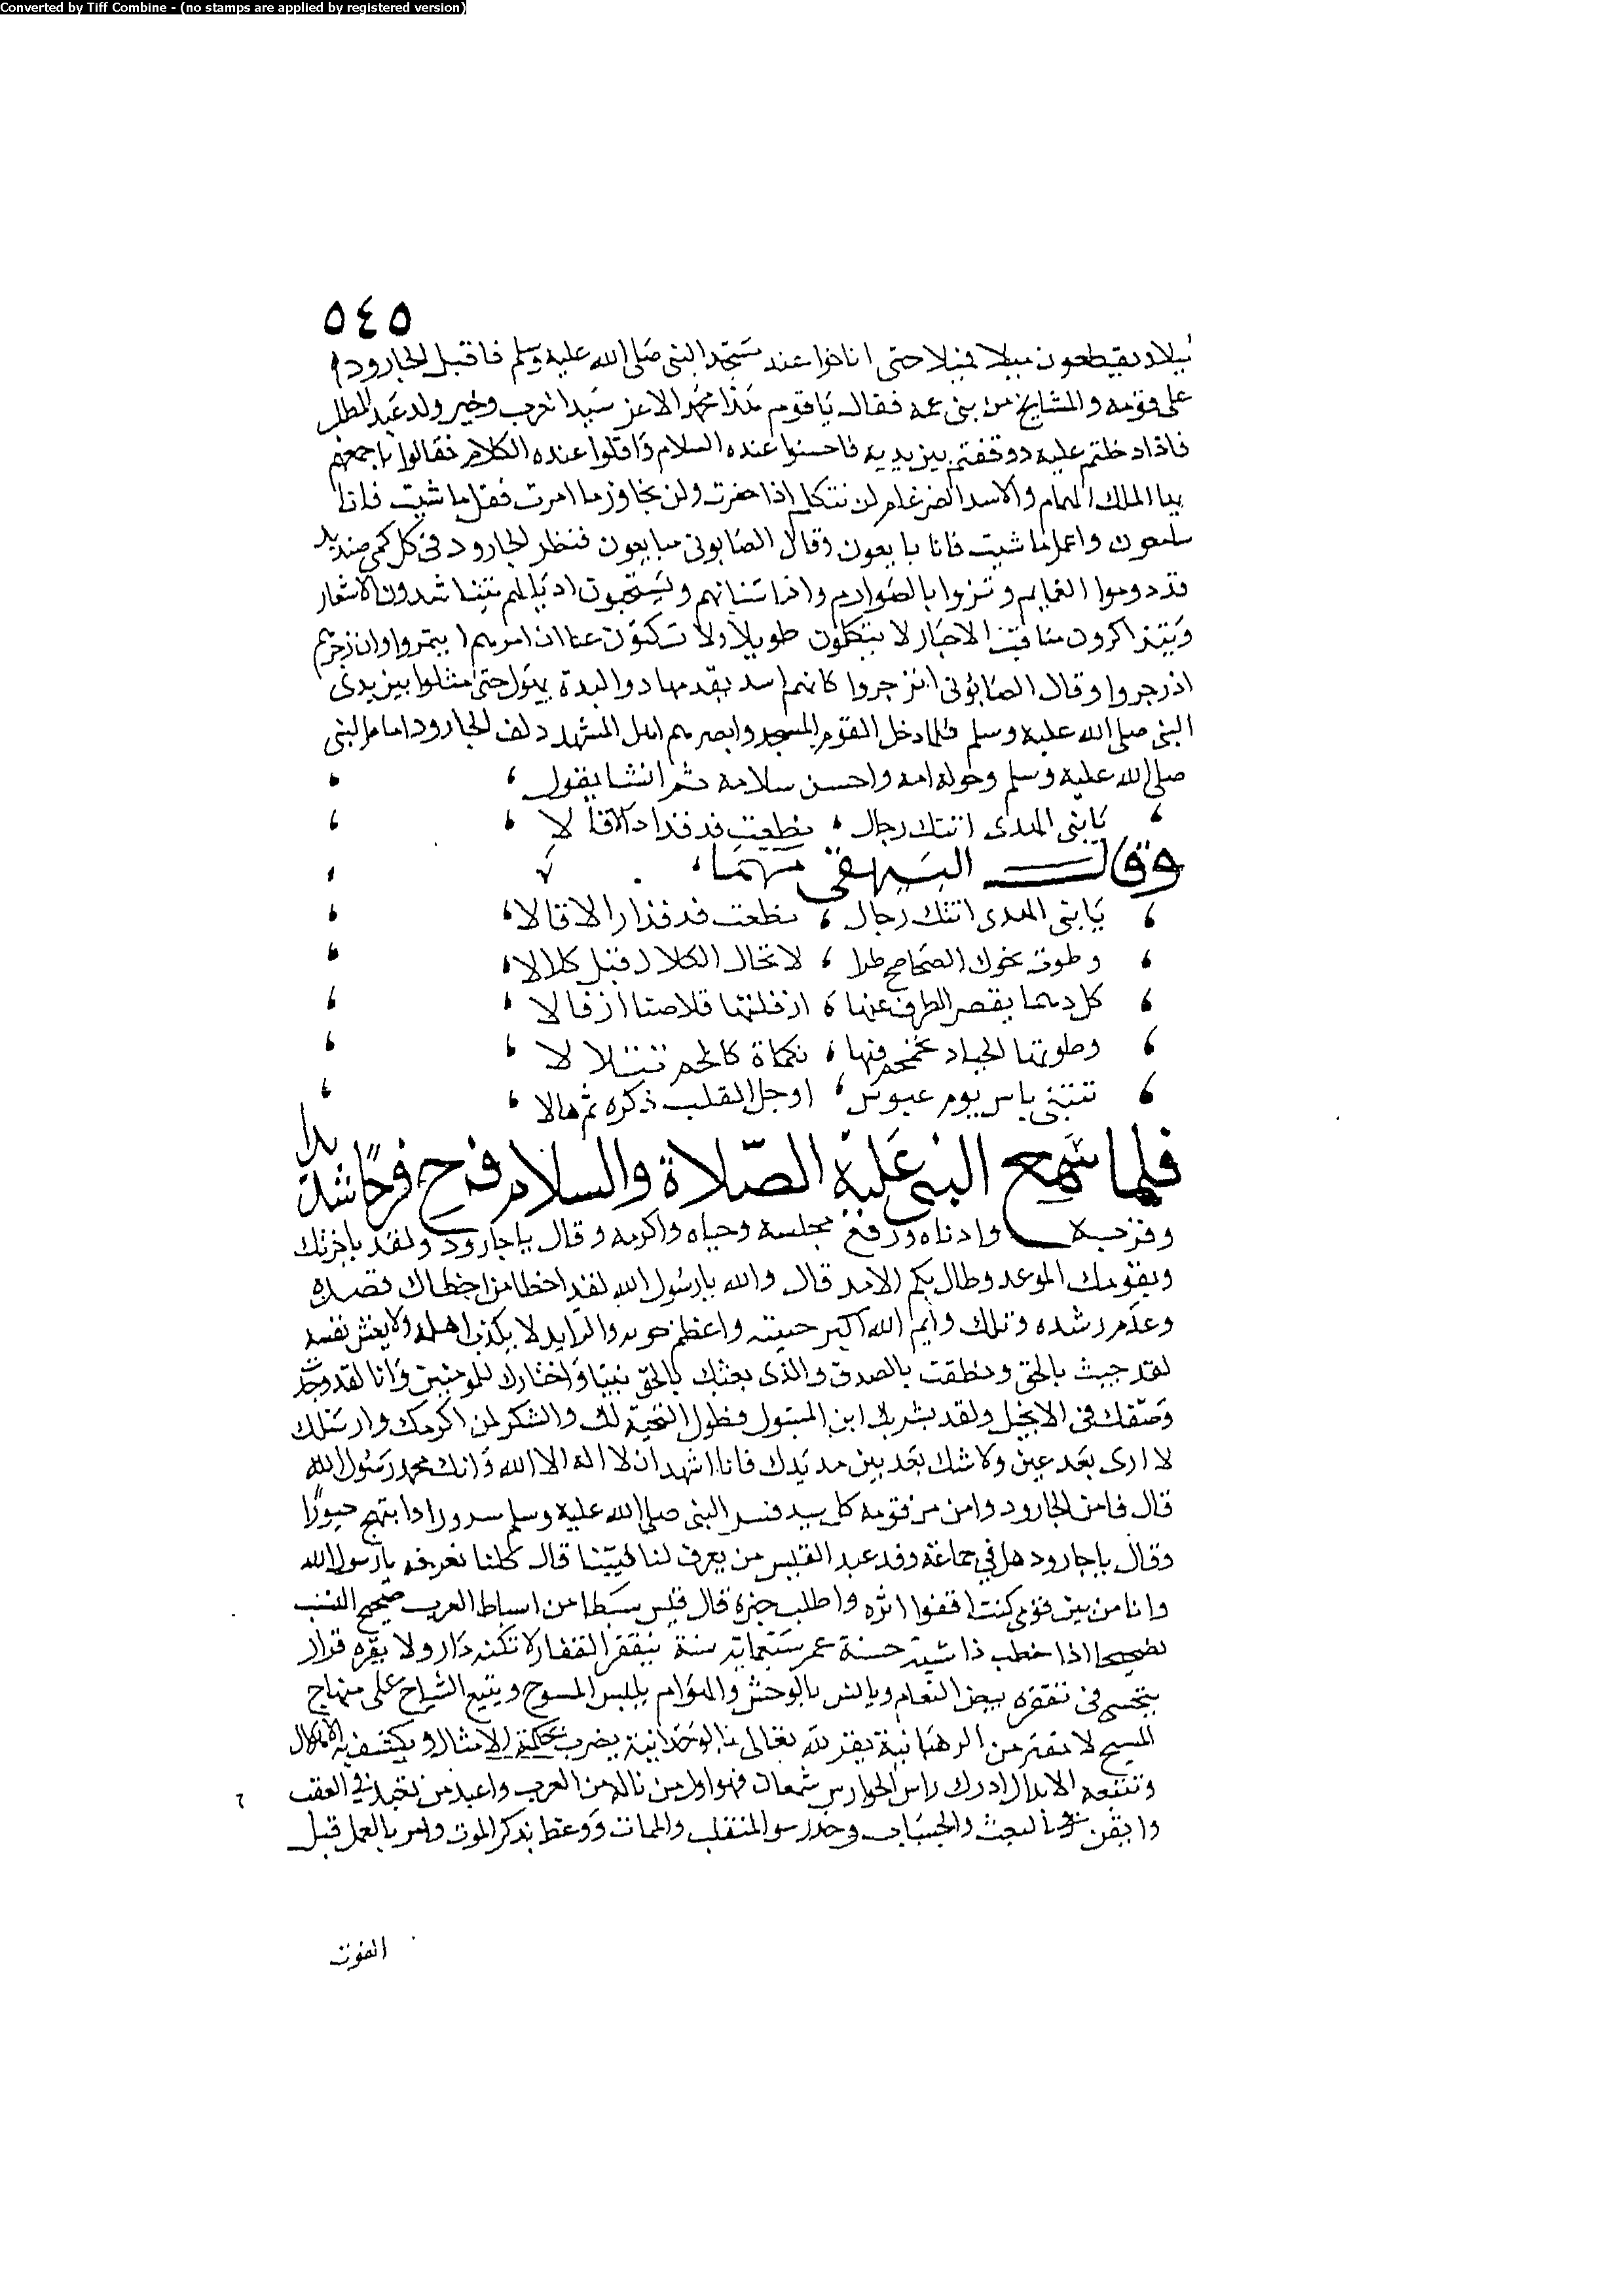 Converted by Tiff Combine - (no stamps are applied by registered version)
٥٤٥
ميلا ويقطعون ميلا فميلا حتى اناخوا عند مسجد النبى صلى الله عليه وسلم فاقبل الجارود
على قومه والمشايخ من بنى عمه فقال يا قوم هذا محمد الاغر سيد العرب وخير ولد عبد المطلب
فاذا دخلتم عليه ووقفتم بين يديه فاحسنوا عنده السلام واقلوا عنده الكلام فقالوا باجمعهم
يا ايها الملك الهمام والاسد الضرغام لن نتكلم اذا حضرت ولن نجاوز ما امرت فقل ما شيت فانا
سامعون واعمل ما شيت فانا تابعون وقال الصابونى مبايعون فنظر الجارود فى كل كمى صنديد
قد دوموا العمايم وتزوا بالصوارم يتناشدون الاشعار
ويتذاكرون مناقب الاخيار لا يتكلمون طويلا ولا يسكتون عيا ان امرهم ايتمروا وان زجرهم
ازدجروا وقال الصابونى انزجروا كانهم اسد يقدمها ذو لبدة مهول حتى مثلوا بين يدى
النبى صلى الله عليه وسلم فلما دخل القوم المسجد وابصرهم اهل المشهد دلف الجارود امام النبى
صلى الله عليه وسلم واحسن سلامه ثم انشا يقول
يا بنى الهدى اتتك رجال ، قطعت فدفدا وآلا فآلا
وقال البيهقى مهمها
يا بنى الهدى اتتك رجال ، قطعت فدفدا وآلا فآلا
وطوت نحوك الصحاصح طرا ، لا تخال الكلال قبل كلالا
كل دهما يقصر الطرف عنها ، ارقلتها قلاصنا ارقالا
وطوتها الجياد تجمح فيها ، بكماة كانجم تتلالا
تبتغى باس يوم عبوس ، اوجل القلب ذكره ثم هالا
فلما سمع النبى عليه الصلاة والسلام فرح فرحا شديدا
وقربه وادناه ورفع مجلسه وحياه واكرمه وقال يا جارود ولقد تاخر بك
وبقومك الموعد وطال بكم الامد قال والله يا رسول الله لقد اخطا من اخطاك قصده
وعدم رشده وتلك وايم الله اكبر خيبة واعظم حوبه والرايد لا يكذب اهله ولا يغش نفسه
لقد جيت بالحق ونطقت بالصدق والذى بعثك بالحق نبيا واختارك للمومنين وليا لقد وجدت
وصفك فى الانجيل ولقد بشر بك ابن البتول فطول التحية لك والشكر لمن اكرمك وارسلك
لا اثر بعد عين ولا شك بعد يقين مد يدك فانا اشهد ان لا اله الا الله وانك محمد رسول الله
قال فامن الجارود وامن من قومه كل سيد فسر النبى صلى الله عليه وسلم سرورا وابتهج حبورا
وقال يا جارود هل فى جماعة وفد عبد القيس من يعرف لنا قسا قال كلنا نعرفه يا رسول الله
وانا من بين قومى كنت اقفوا اثره واطلب خبره كان قس سبطا من اسباط العرب صحيح النسب
فصيحا اذا خطب ذا شيبة حسنة عمر سبعماية سنة يتقفر القفار لا تكنه دار ولا يقره قرار
يتحسى فى تقفره بيض النعام ويانس بالوحش والهوام يلبس المسوح ويتبع السياح على منهاج
المسيح لا يفتر من الرهبانية يقر لله تعالى بالوحدانية يضرب بحكمته الامثال ويكشف به الاهوال
وتتبعه الابدال ادرك راس الحواريين شمعان فهو اول من تاله من العرب واعبد من تعبد فى الحقب
وايقن بالبعث والحساب وحذر سو المنقلب والمآب ووعظ بذكر الموت وامر بالعمل قبل
الفوت